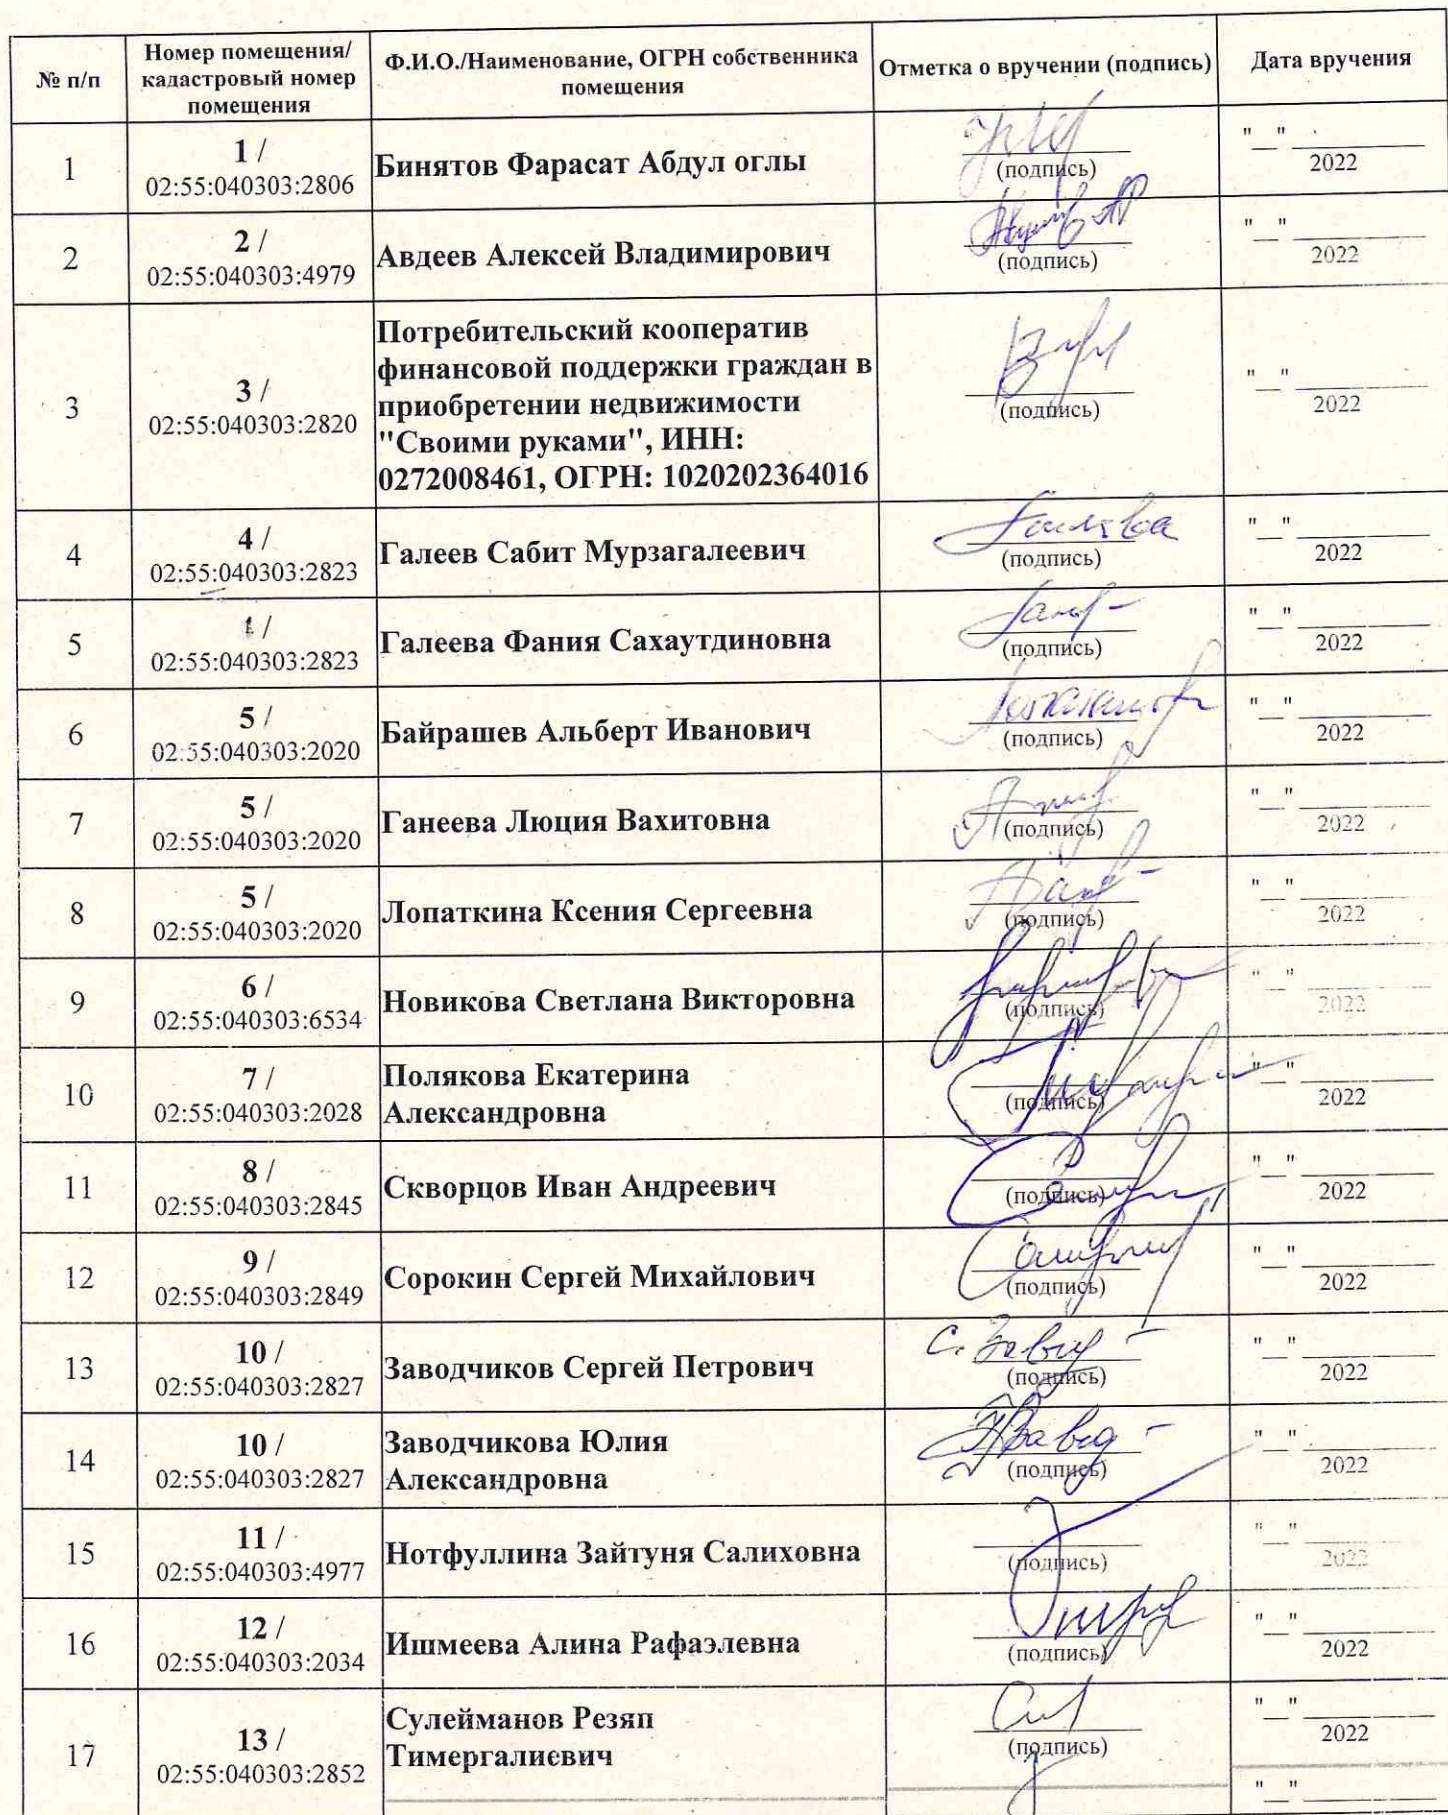 № п/п
Номер помещения/
кадастровый номер
помещения
Ф.И.О./Наименование, ОГРН собственника
помещения
Отметка о вручении (подпись)
Дата вручения
1
1 /
02:55:040303:2806
Бинятов Фарасат Абдул оглы
(подпись)
"__" ________
2022
2
2 /
02:55:040303:4979
Авдеев Алексей Владимирович
(подпись)
"__" ________
2022
3
3 /
02:55:040303:2820
Потребительский кооператив
финансовой поддержки граждан в
приобретении недвижимости
"Своими руками", ИНН:
0272008461, ОГРН: 1020202364016
(подпись)
"__" ________
2022
4
4 /
02:55:040303:2823
Галеев Сабит Мурзагалеевич
(подпись)
"__" ________
2022
5
/
02:55:040303:2823
Галеева Фания Сахаутдиновна
(подпись)
"__" ________
2022
6
5 /
02:55:040303:2020
Байрашев Альберт Иванович
(подпись)
"__" ________
2022
7
5 /
02:55:040303:2020
Ганеева Люция Вахитовна
(подпись)
"__" ________
2022
8
5 /
02:55:040303:2020
Лопаткина Ксения Сергеевна
(подпись)
"__" ________
2022
9
6 /
02:55:040303:6534
Новикова Светлана Викторовна
(подпись)
"__" ________
2022
10
7 /
02:55:040303:2028
Полякова Екатерина
Александровна
(подпись)
"__" ________
2022
11
8 /
02:55:040303:2845
Скворцов Иван Андреевич
(подпись)
"__" ________
2022
12
9 /
02:55:040303:2849
Сорокин Сергей Михайлович
(подпись)
"__" ________
2022
13
10 /
02:55:040303:2827
Заводчиков Сергей Петрович
(подпись)
"__" ________
2022
14
10 /
02:55:040303:2827
Заводчикова Юлия
Александровна
(подпись)
"__" ________
2022
15
11 /
02:55:040303:4977
Нотфуллина Зайтуня Салиховна
(подпись)
"__" ________
2022
16
12 /
02:55:040303:2034
Ишмеева Алина Рафаэлевна
(подпись)
"__" ________
2022
17
13 /
02:55:040303:2852
Сулейманов Резяп
Тимергалиевич
(подпись)
"__" ________
2022
"__" ________